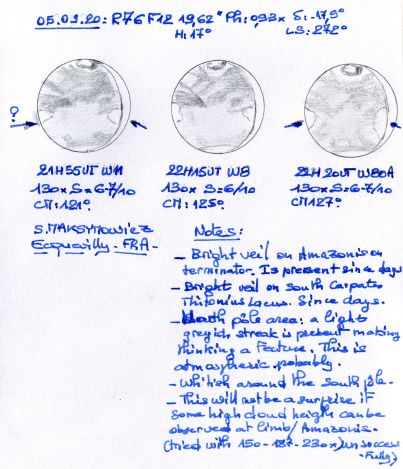 05.09.20: R76 F12 19,62" Ph: 0,93x δ: -17,9°
H: 17° LS: 272°
?
21H55UT W11
130x S=6-7/10
CM: 121°
22H15UT W8
130x S=6/10
CM: 125°
22H20UT W80A
130x S=6-7/10
CM 127°
S. MAKSYMOWICZ
Ecquevilly - FRA -
Notes:
- Bright veil on Amazonis on
terminator. Is present since days
- Bright veil on south Carpate
Thitonius Lacus. Since days.
- North pôle area: a light
greyish streak is present making
thinking a feature. This is
atmospheric probably.
- Whitish around the south pôle.
- This will not be a surprise if
some high cloud heigth can be
observed at limb/Amazonis.
(tried with 150-187-230x) unsuccess
-fully)